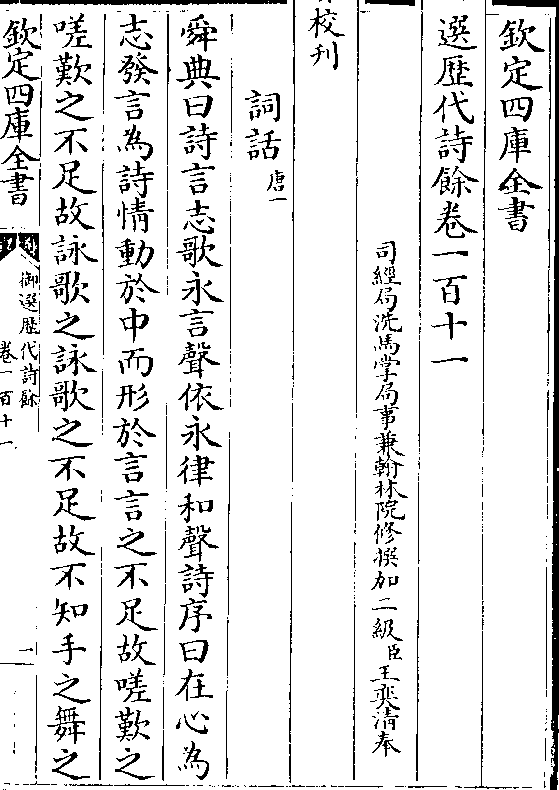 欽定四庫全書
選歴代詩餘卷一百十一
司經局洗馬掌局事兼翰林院修撰加二級臣王奕清奉
校刋
詞話唐一
舜典曰詩言志歌永言聲依永律和聲詩序曰在心為
志發言為詩情動於中而形於言言之不足故嗟歎之
嗟歎之不足故詠歌之詠歌之不足故不知手之舞之
欽定四庫全書
御選歴代詩餘
卷一百十一
一